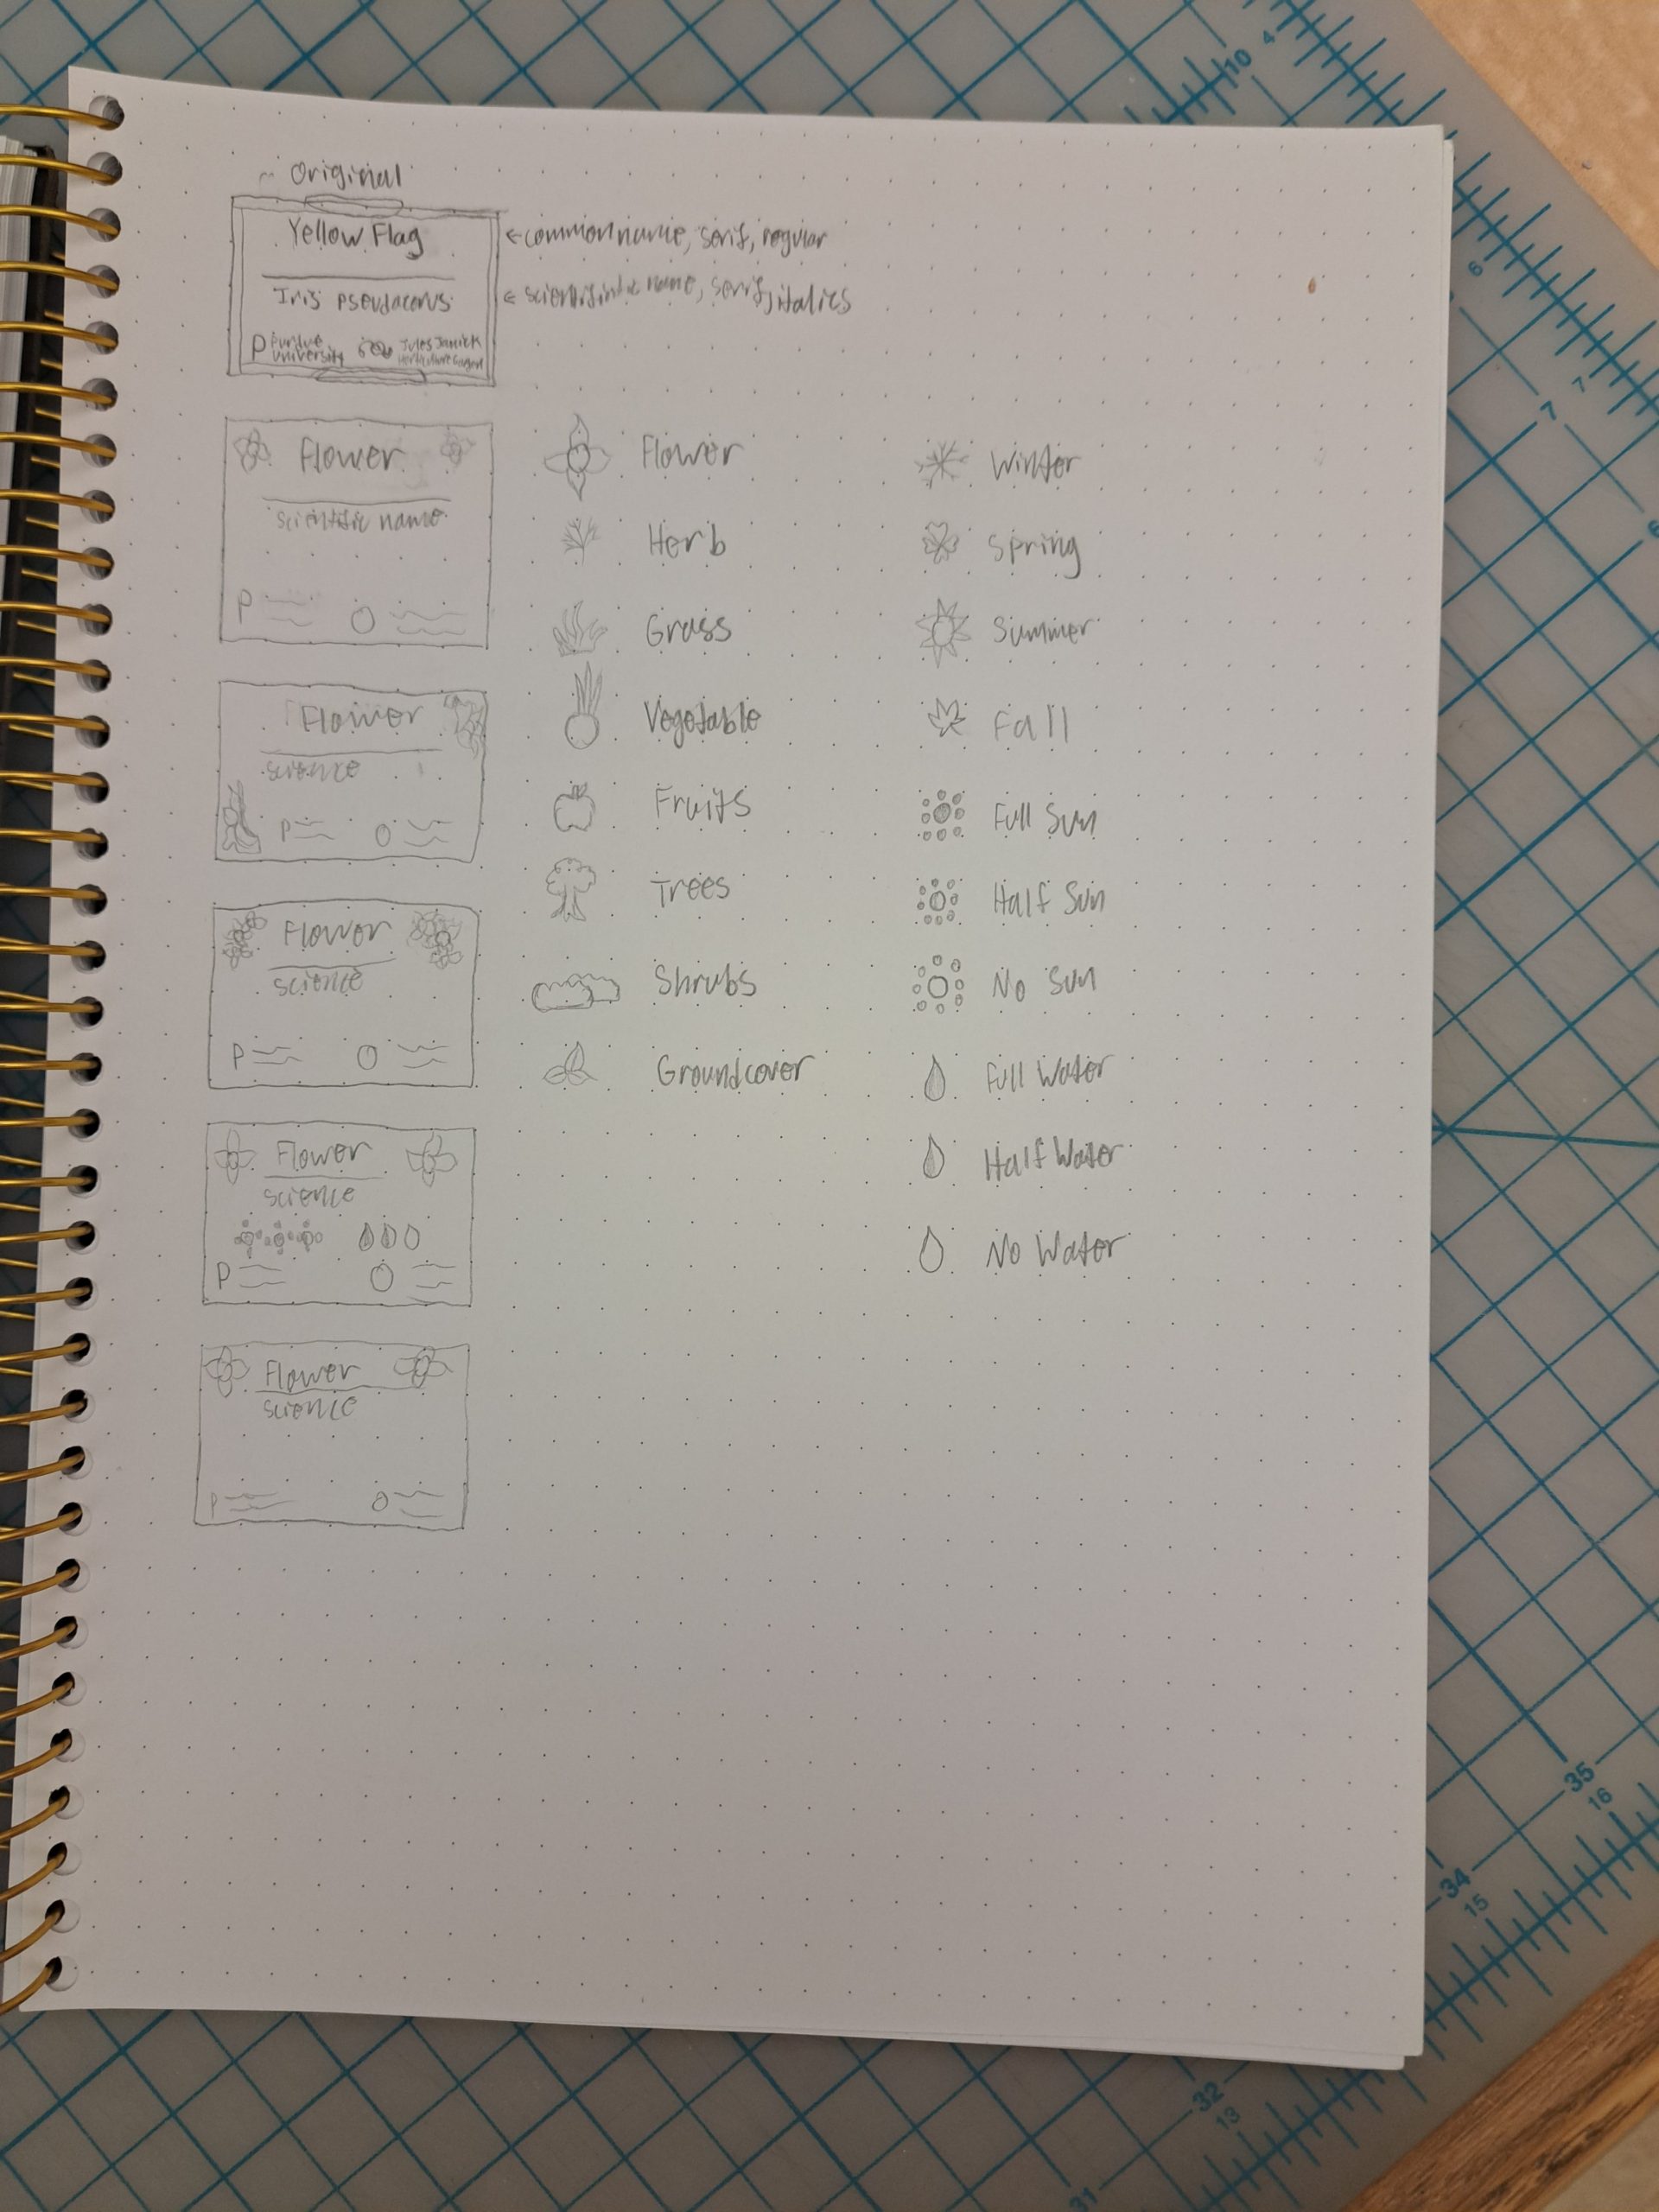 ~ Original
Yellow Flag
Iris pseudacorus
P Purdue University
Jules Janick Horticulture Garden
← common name, serif, regular
← scientific name, serif, italics
Flower
scientific name
P
Flower
science
P
Flower
science
P
Flower
science
P
Flower
science
P
Flower
Herb
Grass
Vegetable
Fruits
Trees
Shrubs
Groundcover
Winter
Spring
Summer
Fall
Full Sun
Half Sun
No Sun
Full Water
Half Water
No Water
10
4
6
7
7
6
35
16
34
15
32
13
31